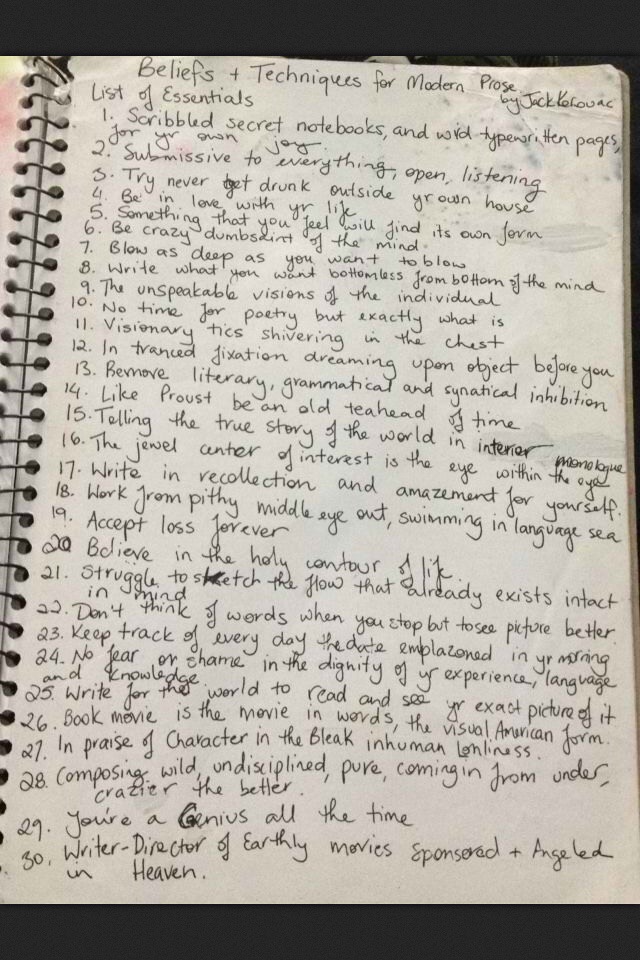 Beliefs + Techniques for Modern Prose
List of Essentials by Jack Kerouac
1. Scribbled secret notebooks, and wild typewritten pages,
for yr own joy
2. Submissive to everything, open, listening
3. Try never get drunk outside yr own house
4. Be in love with yr life
5. Something that you feel will find its own form
6. Be crazy dumbsaint of the mind
7. Blow as deep as you want to blow
8. Write what you want bottomless from bottom of the mind
9. The unspeakable visions of the individual
10. No time for poetry but exactly what is
11. Visionary tics shivering in the chest
12. In tranced fixation dreaming upon object before you
13. Remove literary, grammatical and synatical inhibition
14. Like Proust be an old teahead of time
15. Telling the true story of the world in interior monologue
16. The jewel center of interest is the eye within the eye
17. Write in recollection and amazement for yourself.
18. Work from pithy middle eye out, swimming in language sea
19. Accept loss forever
20 Believe in the holy contour of life
21. Struggle to sketch the flow that already exists intact
in mind
22. Don't think of words when you stop but to see picture better
23. Keep track of every day the date emplazoned in yr morning
24. No fear or shame in the dignity of yr experience, language
and knowledge
25. Write for the world to read and see yr exact picture of it
26. Book movie is the movie in words, the visual American form.
27. In praise of Character in the Bleak inhuman Lonliness.
28. Composing wild, undisciplined, pure, coming in from under,
crazier the better.
29. You're a Genius all the time
30. Writer-Director of Earthly movies Sponsered + Angeled
in Heaven.